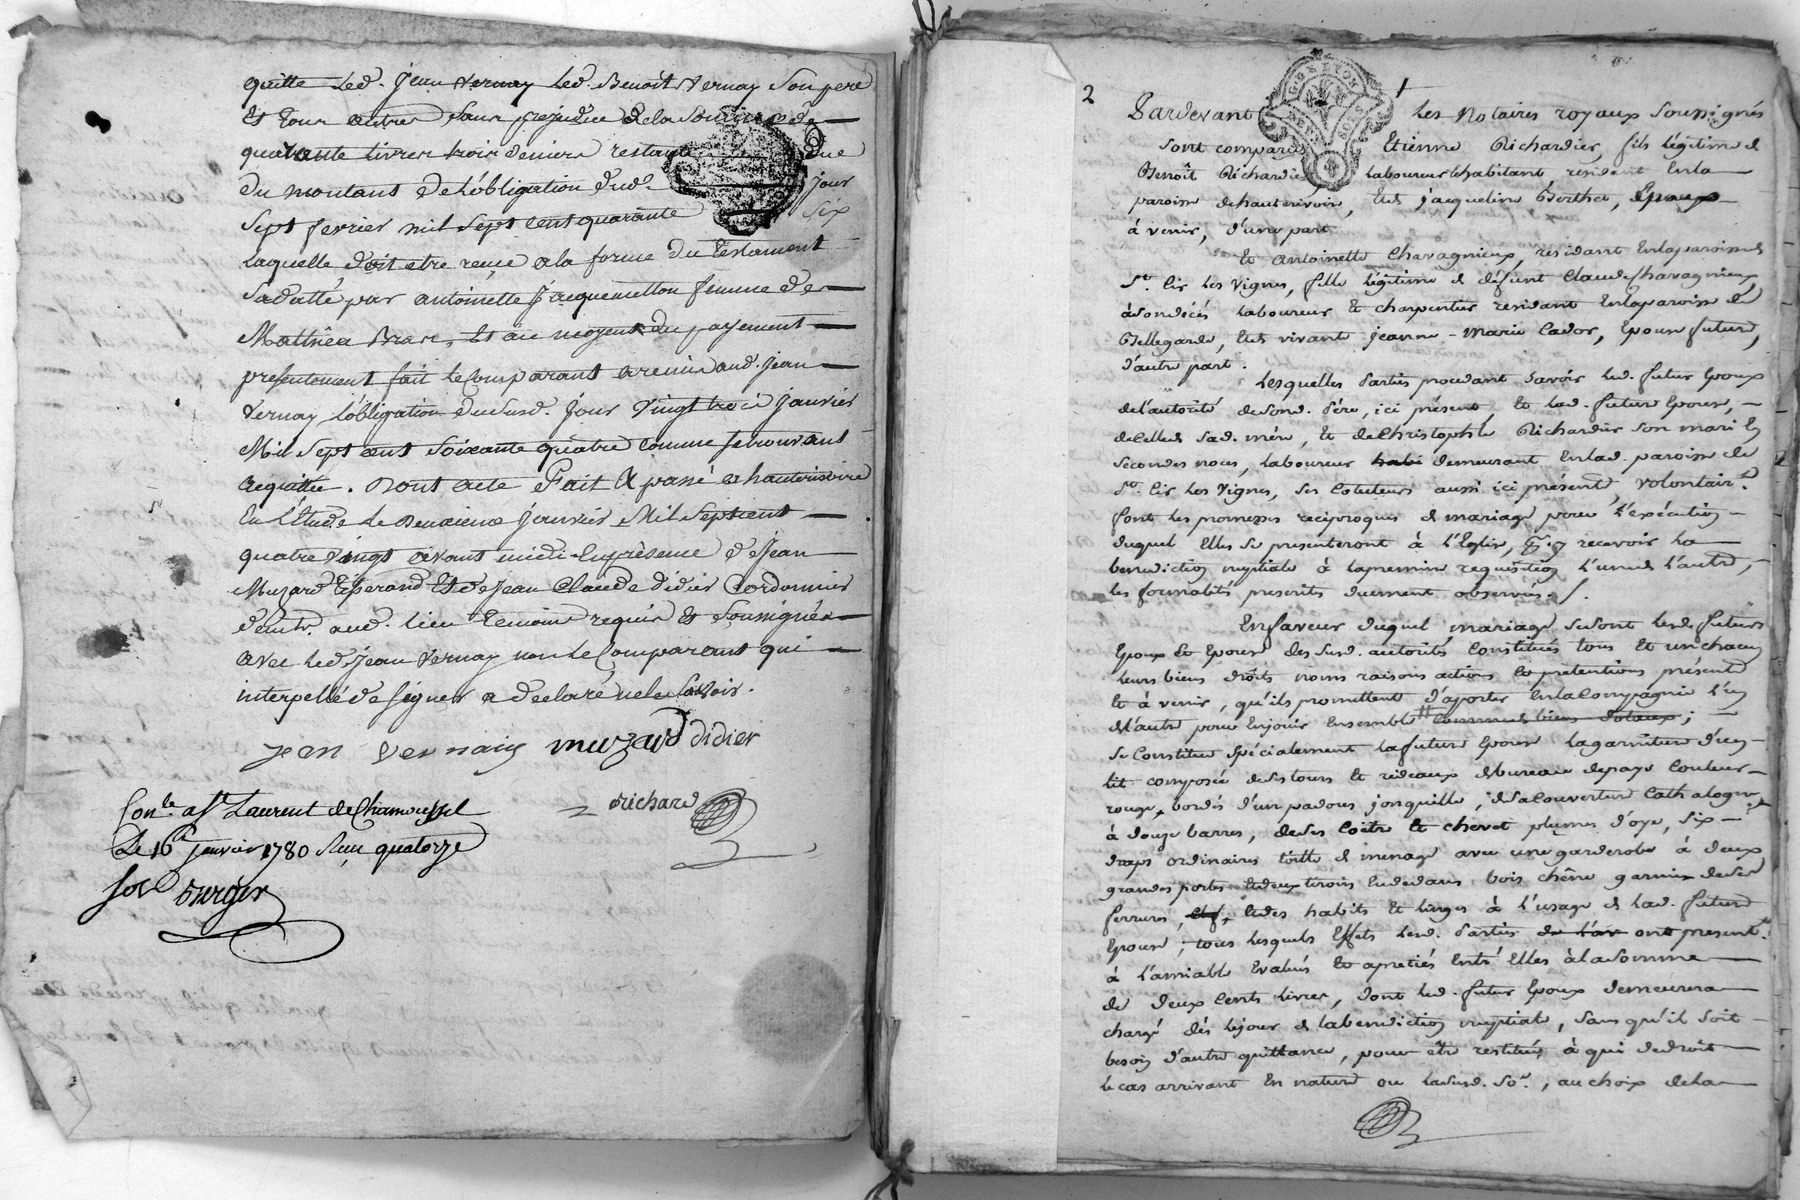 quitte led. Jean Vernay led. Benoît Vernay Son pere
Et tous autres Sans prejudice de la Somme de
quarante livres trois deniers restante due
du montant de l'obligation dud. jour
Sept fevrier mil Sept cent quarante Six
laquelle doit etre reçue a la forme du testament
Sadatté par antoinette Jacquemetton femme de
Matthieu Brac, Et au moyen du payement
presentement fait le Comparant a remis aud. Jean
Vernay l'obligation dud. jour Vingt trois Janvier
Mil Sept cent Soixante quatre comme Se trouvant
acquittée. Dont acte Fait & passé a hauterivoire
En l'Etude le Deuxieme Janvier Mil Sept cent
quatre Vingt avant midi En présence de Jean
Muzard Et de Jean Claude Didier Cordonnier
demtt. aud. lieu temoins requis Et Soussignés
avec led. Jean Vernay non le Comparant qui
interpellé de Signer a declaré ne le Savoir.
jean vernaiy muzard didier
Richard
Con.lé a St. Laurent de Chamousset
Le 16e janvier 1780 Reçu quatorze
sols Burger
2
1
Pardevant Les Notaires royaux Soussignés
Sont comparus Etienne Richardier, fils légitime de
Benoît Richardier laboureur & habitant résident En la
paroisse de hauterivoire, Et de Jacqueline Berthet, Epoux
à venir, d'une part
Et Antoinette Chavagnieux, residant En la paroisse de
St. Cir les Vignes, fille légitime de défunt Claude Chavagnieux,
à Son décés laboureur Et charpentier residant En la paroisse de
Bellegarde, Et de vivante Jeanne-Marie Cador, Epouse future,
d'autre part.
Lesquelles Parties procedant Savoir led. futur Epoux
de l'autorité de Sond. Pére, ici présent, Et lad. future Epouse,
de Celle de Sad. mére, Et de Christophle Richardier Son mari En
Secondes noces, laboureur habi demeurant En lad. paroisse de
St. Cir les Vignes, Ses Cotuteurs aussi ici présents, Volontair.t
font les promesses reciproques de mariage pour l'exécution
duquel Elles Se presenteront à l'Eglise, pr. y recevoir la
benediction nuptiale à la premiere requisition l'une de l'autre,
les formalités prescrites duement observées./.
En faveur duquel mariage Se Sont lesd. futurs
Epoux Et Epouse des Susd. autorités Constitués tous Et un chacun
leurs biens droits noms raisons actions Et prétentions présents
Et à venir, qu'ils promettent d'aporter En la Compagnie l'un
de l'autre pour En jouir Ensemble # Comme de biens dotaux;
Se Constitue Spécialement la future Epouse la garniture d'un
lit composée de Ses tours Et rideaux de bureau de pays Couleur
rouge, bordés d'un padoux jonquille, de Sa Couverture Cathalogne
à douze barres, de Ses Coitre Et chevet plumes d'oye, Six
draps ordinaires toille de menage avec une garderobe à deux
grandes portes Et deux tiroirs En dedans bois chêne garnie de Ses
ferrures, clef, Et des habits Et linges à l'usage de lad. future
Epouse; tous lesquels Effets lesd. Parties de l'av ont present.t
à l'amiable Evalués Et apretiés Entr'Elles à la Somme
de deux Cents livres, dont led. futur Epoux demeurera
chargé dés le jour de la benediction nuptiale, Sans qu'il Soit
besoin d'autre quittance, pour être restitués à qui de droit
le cas arrivant En nature ou lad. So.e, au choix de la